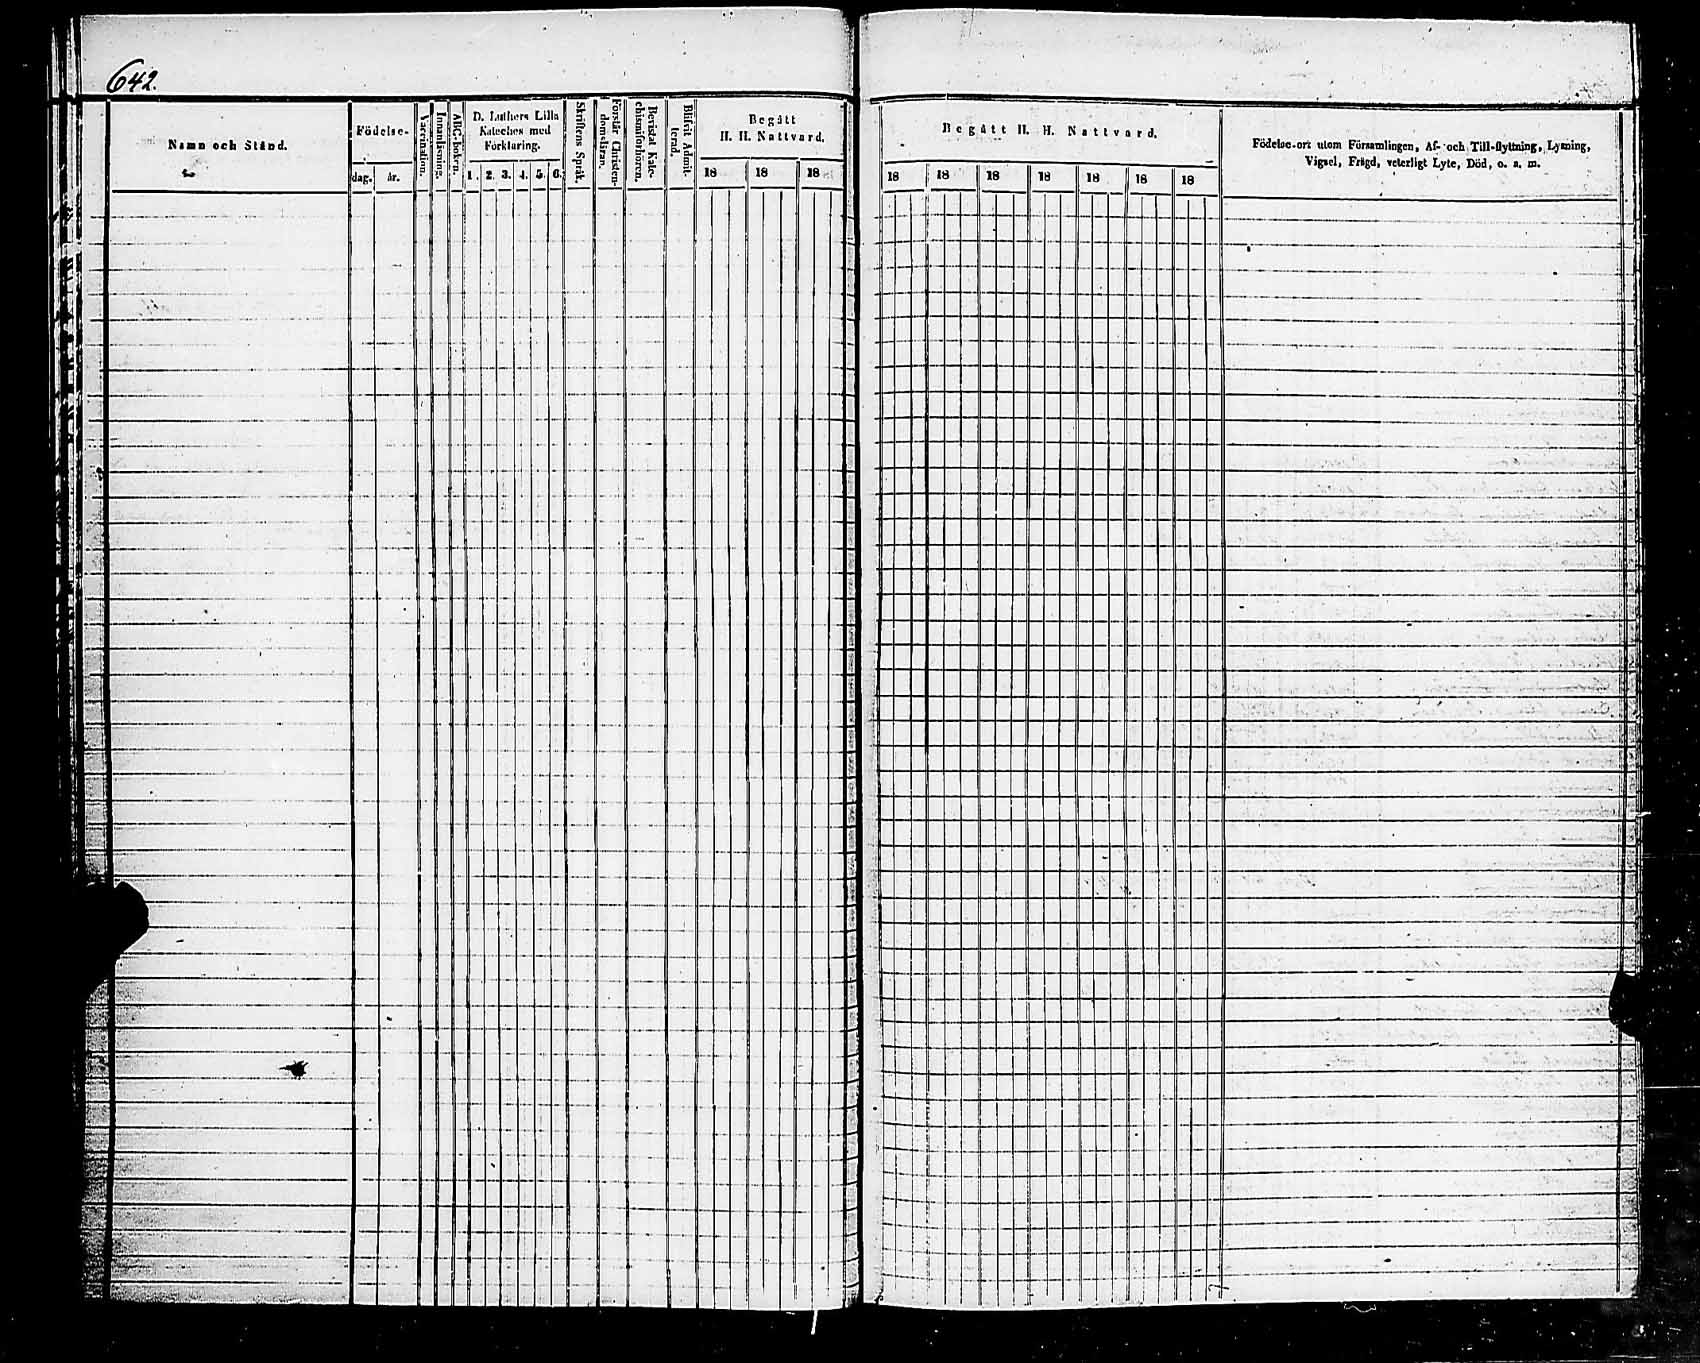 642.
Namn och Stånd.
Födelse-
dag.
år.
Vaccination.
Innanläsning.
ABC-boken.
D. Luthers Lilla
Kateches med
Förklaring.
1. 2. 3. 4. 5. 6.
Skriftens Språk.
Förstår Christen-
domsläran.
Bevistat Kate-
chismiförhören.
Blifvit Admit-
terad.
Begått
H. H. Nattvard.
18 18 18
Begått H. H. Nattvard.
18 18 18 18 18 18 18
Födelse-ort utom Församlingen, Af- och Till-flyttning, Lysning,
Vigsel, Frägd, veterligt Lyte, Död, o. s. m.